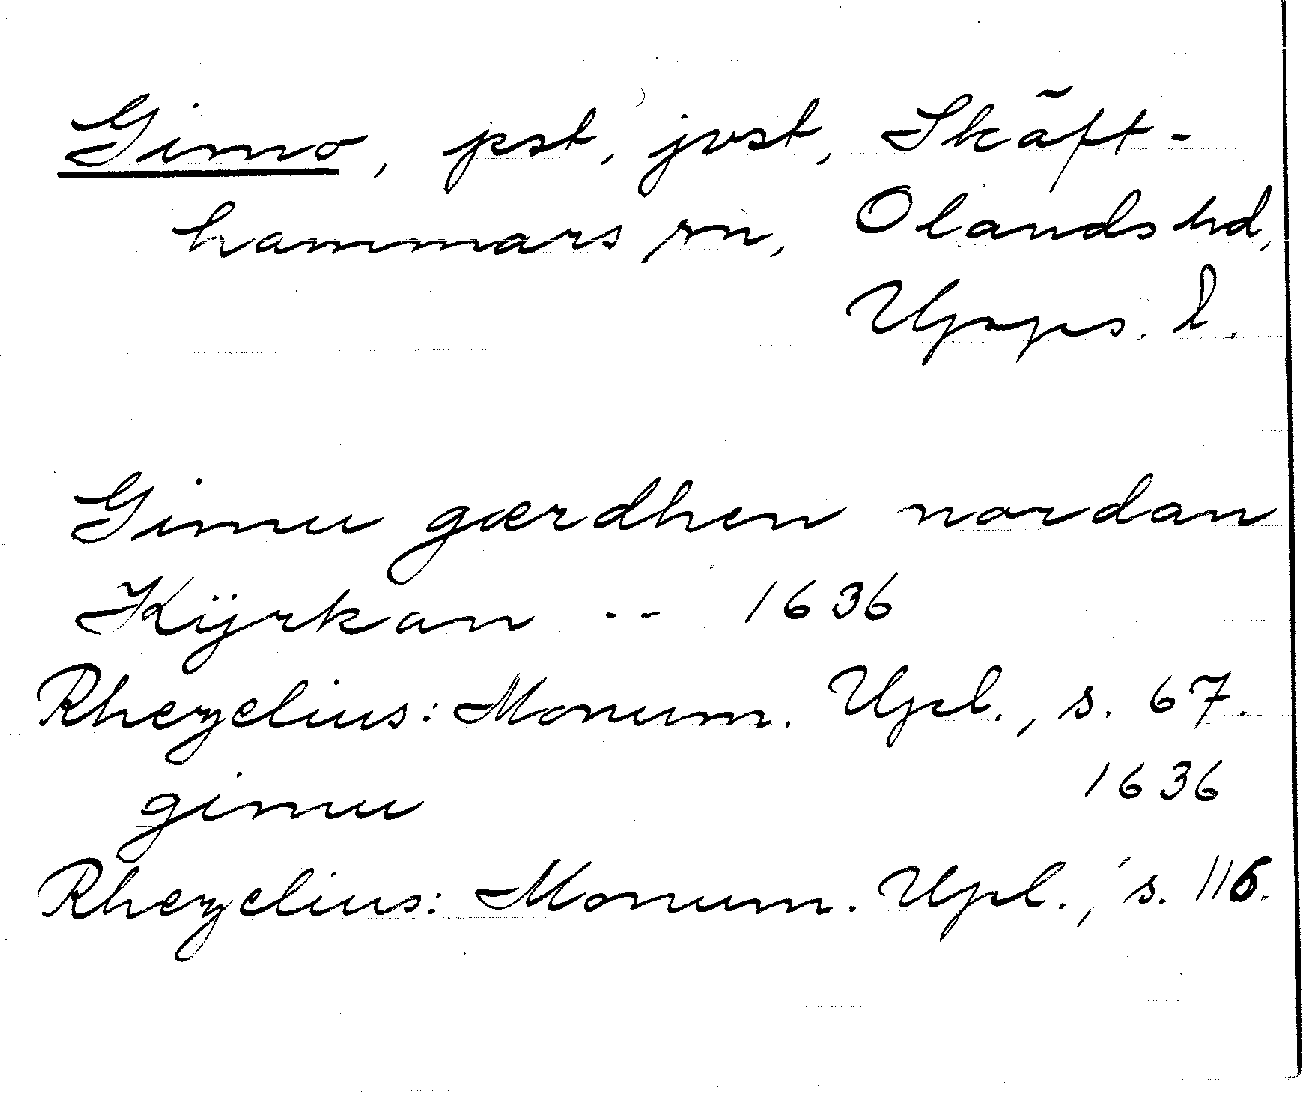 Gimo, pst, jvst, Skäft-
hammars sn, Olands hd,
Upps. l.
Gimu gærdhen nordan
Kÿrkan -- 1636
Rhezelius: Monum. Upl., s. 67.
gimu 1636
Rhezelius: Monum. Upl., s. 116.